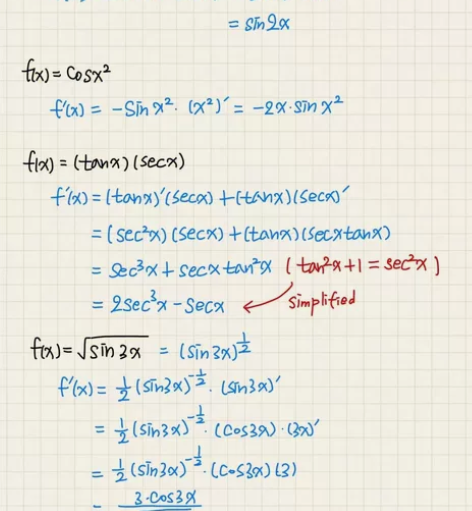 = sin2x
f(x) = cosx²
f'(x) = -sinx² · (x²)' = -2x·sinx²
f(x) = (tanx)(secx)
f'(x) = (tanx)'(secx) + (tanx)(secx)'
= (sec²x)(secx) + (tanx)(secxtanx)
= sec³x + secxtan²x (tan²x + 1 = sec²x)
= 2sec³x - secx ← simplified
f(x) = √sin3x = (sin3x)^½
f'(x) = ½(sin3x)^-½ · (sin3x)'
= ½(sin3x)^-½ · (cos3x) · (3x)'
= ½(sin3x)^-½ · (cos3x)(3)
= 3·cos3x